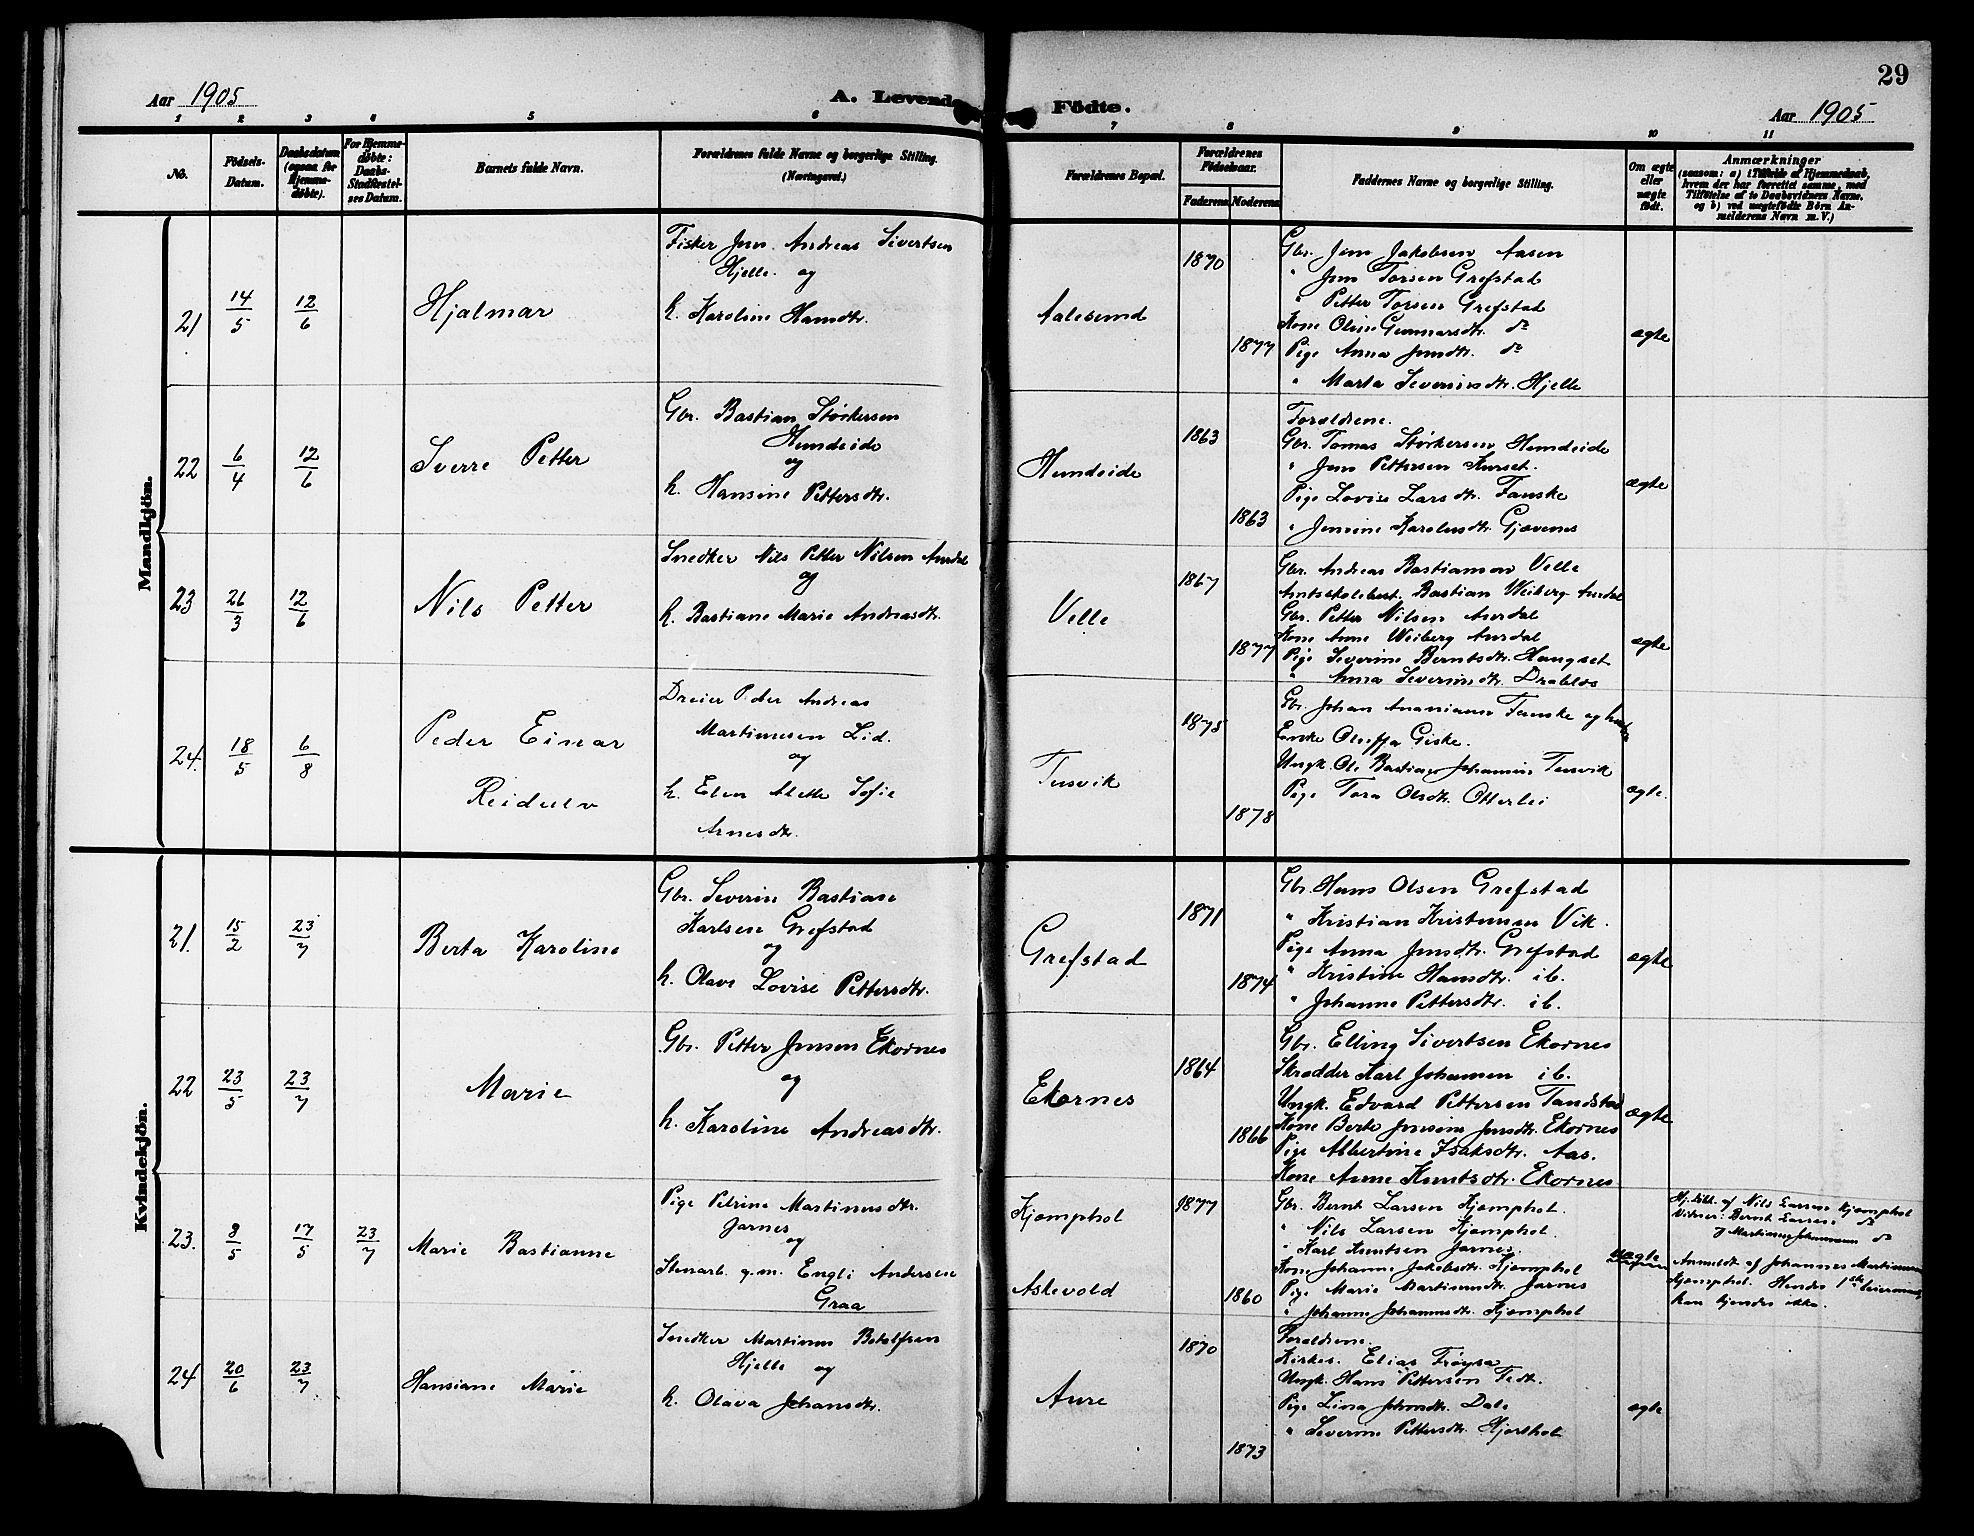 29
Aar 1905
A. Levende Fødte.
Aar 1905
1 2 3 4 5 6 7 8 9 10 11
No.
Födsels-
Datum.
Daabsdatum
(ogsaa for
Hjemme-
döbte).
For Hjemme-
döbte:
Daabs-
Stadfæstel-
ses Datum.
Barnets fulde Navn.
Forældrenes fulde Navne og borgerlige Stilling.
(Næringsvei.)
Forældrenes Bopæl.
Forældrenes
Födselsaar.
Faderens Moderens
Faddernes Navne og borgerlige Stilling.
Om ægte
eller
uægte
födt.
Anmærkninger
(saasom: a) i Tilfælde af Hjemmedaab,
hvem der har forrettet samme, med
Tilföielse af to Daabsvidners Navne,
og b) ved uægtefödte Börn An-
melderens Navn m. V.)
Mandkjön.
21
14/5
12/6
Hjalmar
Fisker Jon Andreas Sivertsen
Hjelle og
h. Karoline Hansdtr.
Aalesund
1870
1877
Gbr. Jon Jakobsen Aasen
" Jon Torsen Grefstad
" Petter Torsen Grefstad
Kone Oline Gunnarsdtr. do
Pige Anna Jonsdtr. do
" Marta Severinsdtr. Hjelle
ægte
22
6/4
12/6
Sverre Petter
Gbr. Bastian Størkersen
Hundeide
og
h. Hansine Pettersdtr.
Hundeide
1863
1863
Forældrene.
Gbr. Tomas Størkersen Hundeide
" Jon Pettersen Kurset.
Pige Lovise Larsdtr. Fauske
" Jensine Karolusdtr. Gjævenes
ægte
23
26/3
12/6
Nils Petter
Snedker Nils Petter Nilsen Aurdal
og
h. Bastiane Marie Andreasdtr.
Velle
1867
1877
Gbr. Andreas Bastiansen Velle
Amtsskolebest. Bastian Weiberg Aurdal
Gbr. Petter Nilsen Aurdal
Kone Anne Weiberg Aurdal
Pige Severine Berntsdtr. Haugset
" Anna Severinsdtr. Drabløs
ægte
24.
18/5
6/8
Peder Einar
Reidulv
Dreier Peder Andreas
Martinusen Lid.
og
h. Elen Alette Sofie
Arnesdtr.
Tusvik
1875
1878
Gbr. Johan Ananiasen Fauske og hustru
Enke Oluffa Giske.
Ungk. Ole Bastian Johansen Tusvik
Pige Tora Olsdtr. Otterlei
ægte.
Kvindekjön.
21.
15/2
23/7
Berta Karoline
Gbr. Severin Bastian
Karlsen Grefstad
og
h. Olave Lovise Pettersdtr.
Grefstad
1871
1874
Gbr. Hans Olsen Grefstad
" Kristian Kristensen Vik.
Pige Anna Jonsdtr. Grefstad
" Kristine Hansdtr. ib.
" Johanne Pettersdtr. ib.
ægte
22
23/5
23/7
Marie
Gbr. Petter Jonsen Ekornes
og
h. Karoline Andreasdtr.
Ekornes
1864
1866
Gbr. Elling Sivertsen Ekornes
Skrædder Karl Johansen ib.
Ungk. Edvard Pettersen Tandstad
Kone Berte Jonsine Jonsdtr. Ekornes
Pige Albertine Isaksdtr. Aas.
Kone Anne Knutsdtr. Ekornes
ægte
23.
8/5
17/5
23/7
Marie Bastianne
Pige Petrine Martinusdtr.
Jarnes
og
Stenarb. g.m. Engli Andersen
Graa
Kjæmphol
Askevold
1877
1860
Gbr. Bernt Larsen Kjæmphol.
" Nils Larsen Kjæmphol.
" Karl Knutsen Jarnes.
Kone Johanne Jakobsdtr. Kjæmphol
Pige Marie Martinusdtr. Jarnes
" Johanne Johannesdtr. Kjæmphol
uægte
Hj. döbt. af Nils Larsen Kjæmphol
Vitner: Bernt Larsen do
og Martinus Johannesen do
Anmeldt af Johannes Martinusen
Kjæmphol. Hendes 1ste leiermaal,
han kjendes ikke.
24
20/6
23/7
Hansiane Marie
Snedker Martinus Botolfsen
Hjelle og
h. Olava Johansdtr.
Aure
1870
1873
Forældrene.
Kirkes. Elias Frøysa
Ungk. Hans Pettersen Tedt.
Pige Lina Johnsdtr. Dale
" Severine Pettersdtr. Hjorthol
ægte